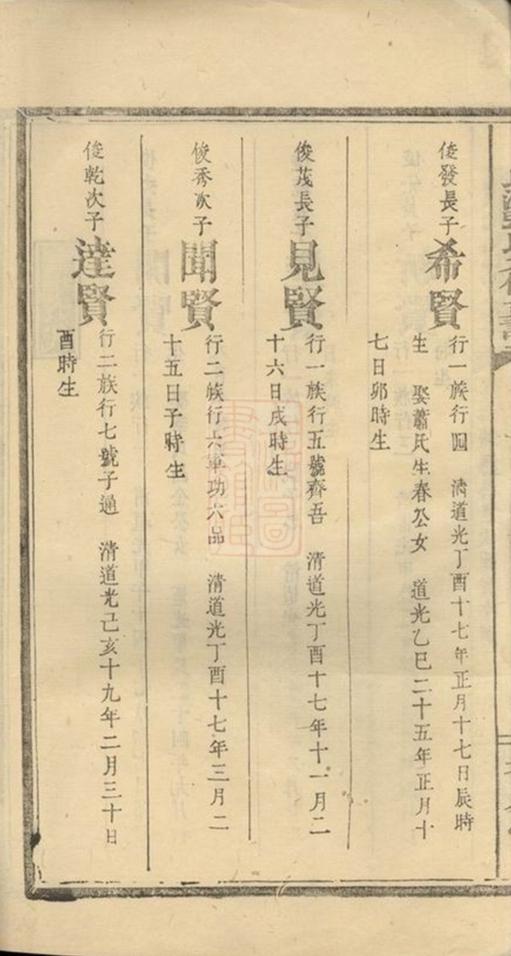 俊發長子
希賢
行一族行四 清道光丁酉十七年正月十七日辰時
生 娶蕭氏生春公女 道光乙巳二十五年正月十
七日卯時生
俊茂長子
見賢
行一族行五號齊吾 清道光丁酉十七年十一月二
十六日戌時生
俊秀次子
聞賢
行二族行六軍功六品 清道光丁酉十七年三月二
十五日子時生
俊乾次子
達賢
行二族行七號子通 清道光己亥十九年二月三十日
酉時生